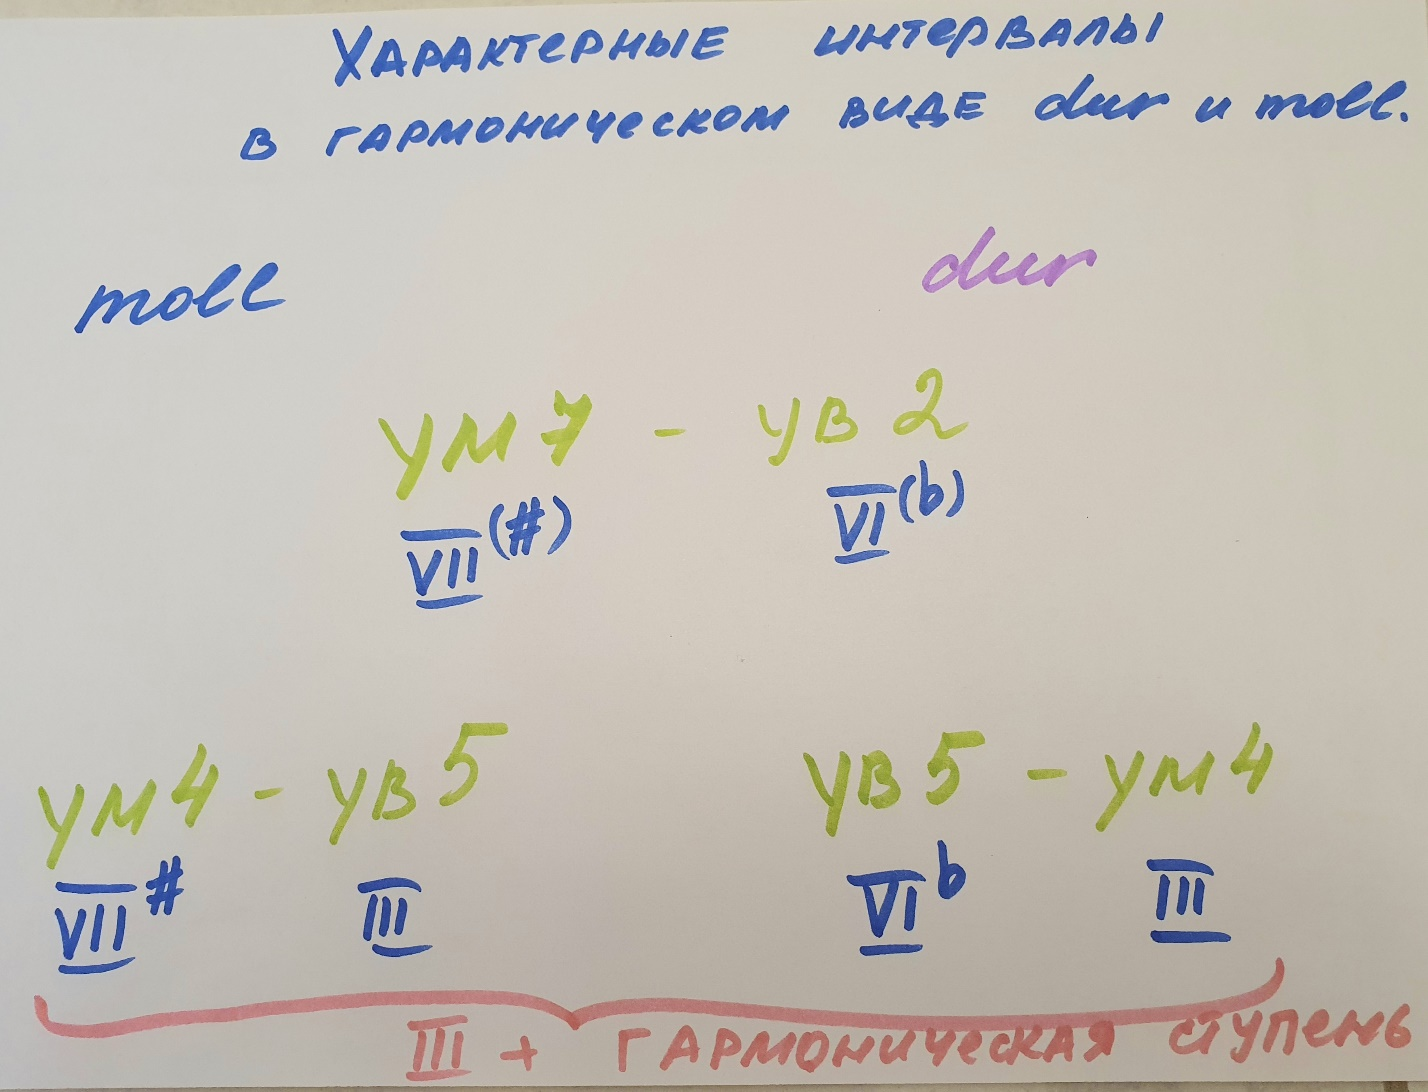 Характерные интервалы
в гармоническом виде dur и moll.
moll dur
ум7 - ув2
VII(#) VI(b)
ум4 - ув5 ув5 - ум4
VII# III VIb III
III + гармоническая ступень